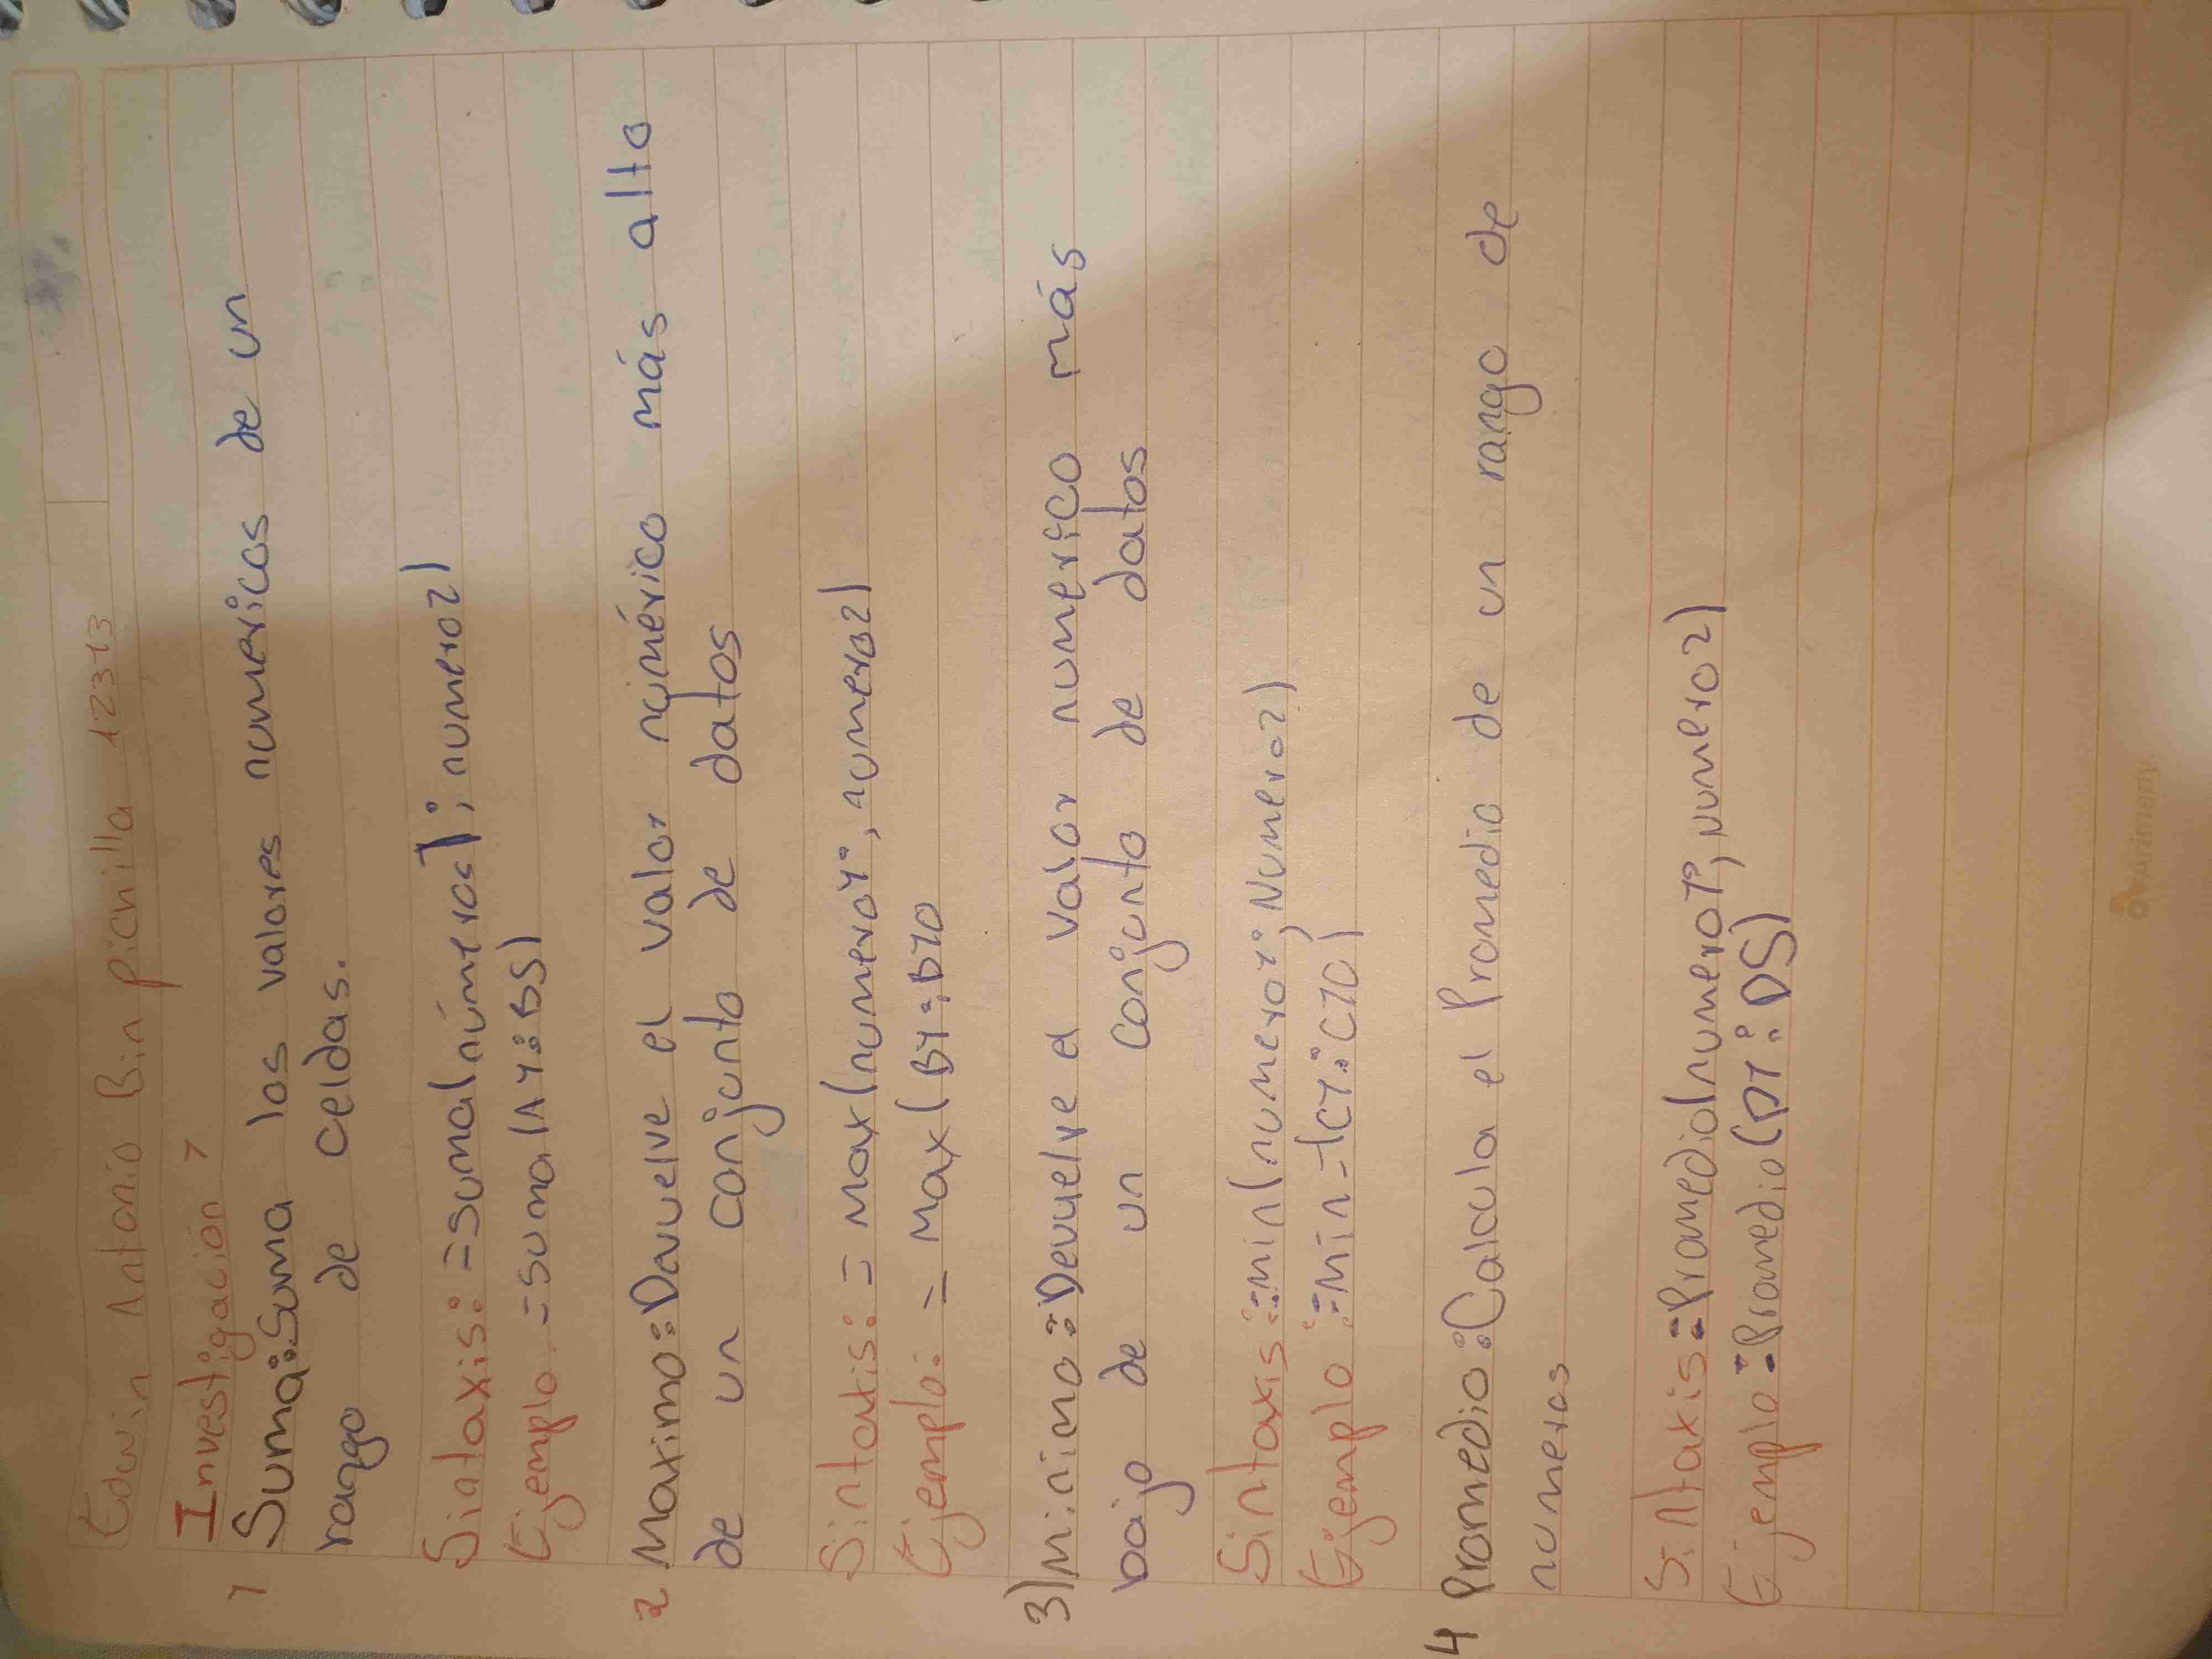 Edwin Antonio Bin pichilla 12313
Investigación 7
1 Suma: Suma los valores numericos de un
rango de celdas.
Sintaxis: =suma(número1; numero2)
Ejemplo. =suma(A1:B5)
2 Maximo: Devuelve el valor númérico más alto
de un conjunto de datos
Sintaxis: = Max(numero1; numero2)
Ejemplo: = Max(B1:B10
3) Minimo: Devuelve el valor numerico más
bajo de un conjunto de datos
Sintaxis: =min(numero1; Numero2)
Ejemplo: =Min=(C1:C10)
4 Promedio: Calcula el Promedio de un rango de
numeros
Sintaxis: =Promedio(numero1; numero2)
Ejemplo: =Promedio(D1:D5)
Arimany